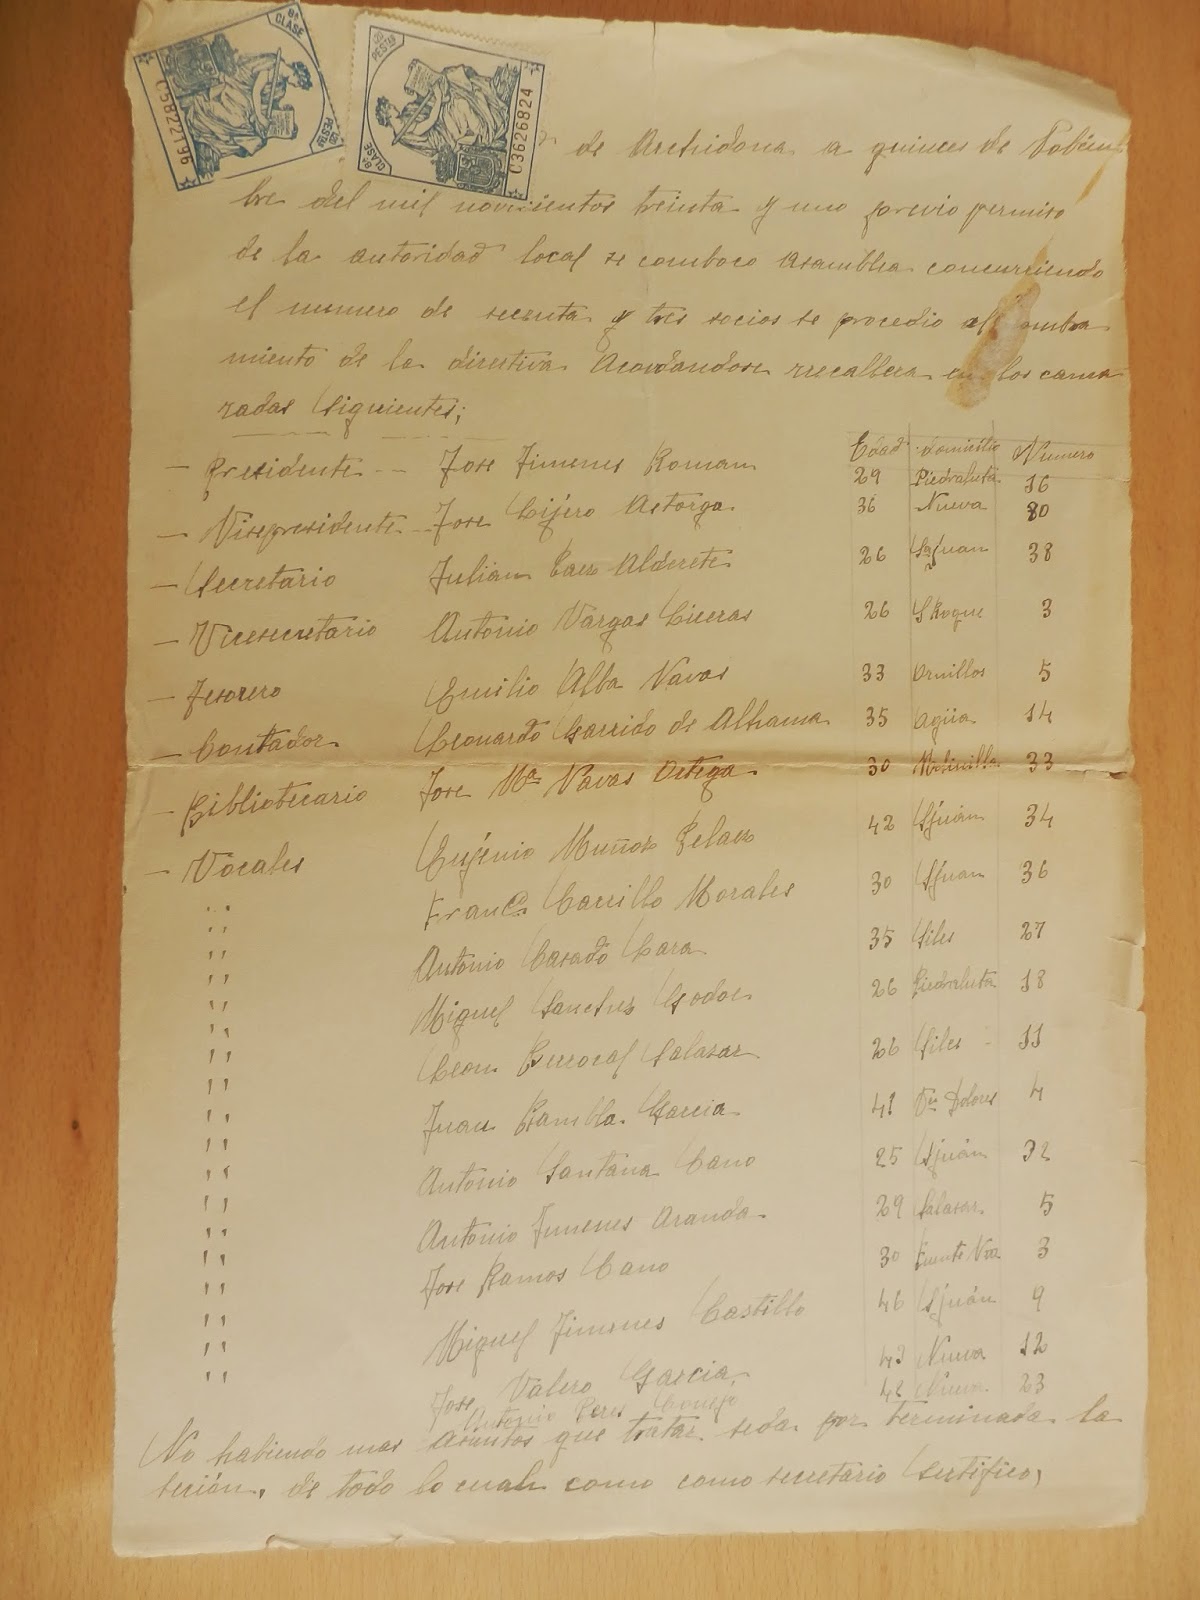 8ª CLASE
C5822196
120 PESTAS
120 PESTAS
8ª CLASE
C3626824
de Archidona a quinces de Nobiem
bre del mil novecientos treinta y uno previo permiso
de la autoridad local se comboco Asamblea concurriendo
el numero de secenta y tres socios se procedio al nombra
miento de la directiva Acordandose rrecallera en los cama
radas Siguientes;
Edad domicilio Numero
- Presidente -- Jose Jimenes Roman 29 Piedraluta 16
- Visepresidente -- Jose Lijero Astorga 36 Nueva 80
- Secretario Julian Caez Alderete 26 Sn Juan 38
- Vicesecretario Antonio Vargas Liceras 26 S Roque 3
- Tesorero Emilio Alba Navas 33 Ornillos 5
- Contador Leonardo Garrido de Alhama 35 Agüa 14
- Bibliotecario Jose Mª Navas Ortega 30 Molinilla 33
- Vocales Eugenio Muñoz Pelaez 42 S Juan 34
" Franco Carrillo Morales 30 S Juan 36
" Antonio Casado Lara 35 Siles 27
" Miguel Sanchez Godoe 26 Piedraluta 18
" Leon Berrocal Salazar 26 Siles 11
" Juan Rambla Garcia 41 Vn Dolores 4
" Antonio Santana Cano 25 S Juan 32
" Antonio Jimenes Aranda 29 Salazar 5
" Jose Ramos Cano 30 Fuente Nva 3
" Miguel Jimenes Castillo 46 S Juan 9
" Jose Valero Garcia 43 Nueva 12
" Antonio Peres Conejo 42 Nueva 23
No habiendo mas asuntos que tratar seda por terminada la
seción, de todo lo cual como como secretario Sertifico,